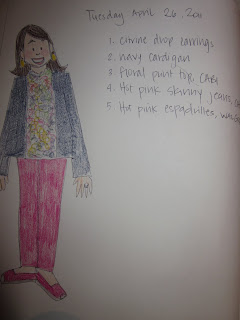 Tuesday April 26, 2011
1. citrine drop earrings
2. navy cardigan
3. floral print top, CAbi
4. Hot pink skinny jeans,
5. Hot pink espadrilles,